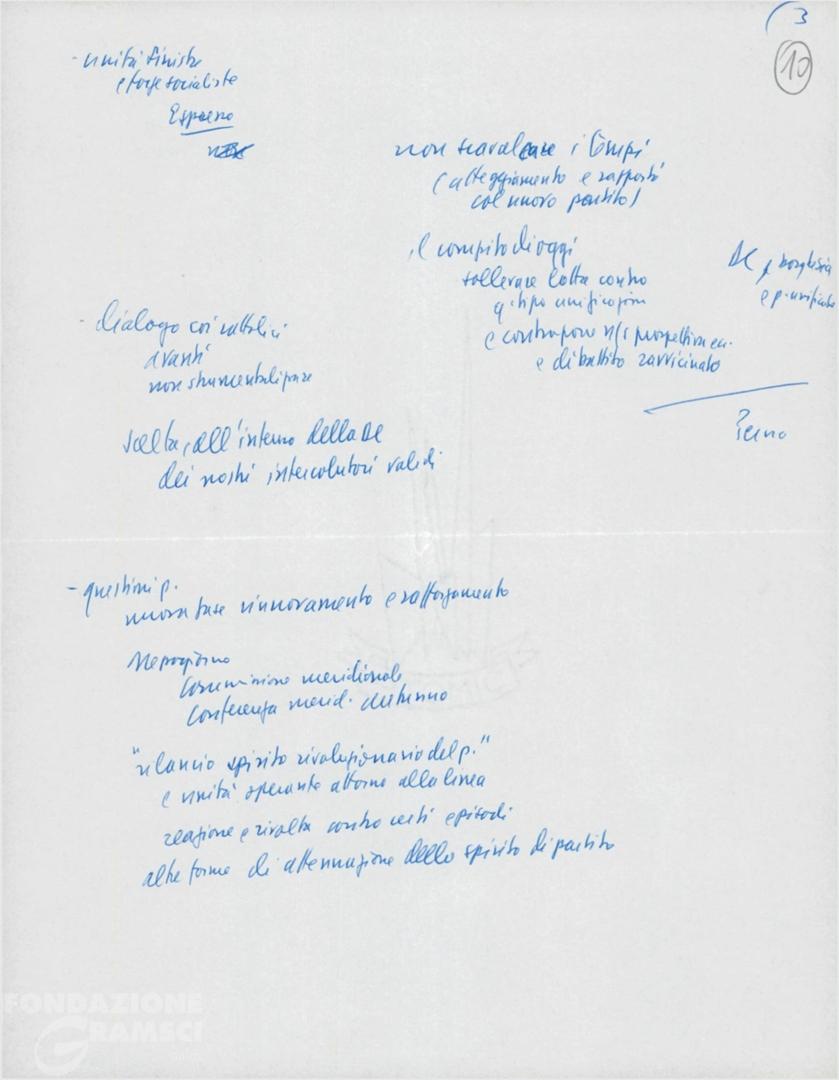 (3
10
- unità sinistre
e forze socialiste
Espresso
non scavalcare i tempi
(atteggiamento e rapporti
col nuovo partito)
il compito di oggi
sollevare lotta contro
q. tipo unificazioni
e contrapporre n/s prospettiva
e dibattito ravvicinato
DC p. borghesia
e p. unificato
Perna
- dialogo coi cattolici
avanti
non strumentalizzare
scelta, all'interno della DC
dei nostri interlocutori validi
- questioni p.
nuova fase rinnovamento e rafforzamento
Mezzogiorno
Commissione meridionale
Conferenza merid. autunno
"rilancio spirito rivoluzionario del p."
e unità operante attorno alla linea
reazione e rivolta contro certi episodi
altre forme di attenuazione dello spirito di partito
FONDAZIONE
GRAMSCI